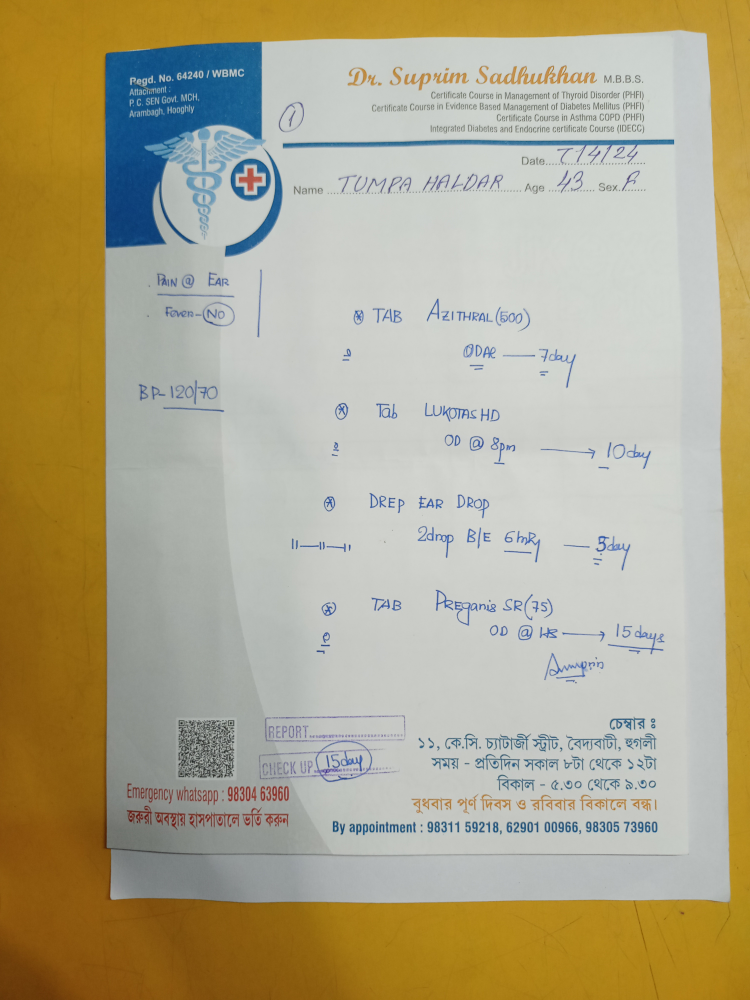 Pegd. No. 64240 / WBMC
Attachment :
P. C. SEN Govt. MCH,
Arambagh, Hooghly
Dr. Suprim Sadhukhan M.B.B.S.
Certificate Course in Management of Thyroid Disorder (PHFI)
Certificate Course in Evidence Based Management of Diabetes Mellitus (PHFI)
Certificate Course in Asthma COPD (PHFI)
Integrated Diabetes and Endocrine certificate Course (IDECC)
1
Date /4/24
Name TUMPA HALDAR Age 43 Sex F
PAIN @ EAR
Fever - NO
BP - 120/70
TAB AZITHRAL (500)
7 day
Tab LUKOTAS HD
OD @ 8pm → 10 day
DREP EAR DROP
2drop B/E — 5 day
TAB PREGanis SR (75)
OD @ → 15 days
REPORT
CHECK UP 15 day
Emergency whatsapp : 98304 63960
জরুরী অবস্থায় হাসপাতালে ভর্তি করুন
চেম্বার :
১১, কে.সি. চ্যাটার্জী স্ট্রীট, বৈদ্যবাটী, হুগলী
সময় - প্রতিদিন সকাল ৮টা থেকে ১২টা
বিকাল - ৫.৩০ থেকে ৯.৩০
বুধবার পূর্ণ দিবস ও রবিবার বিকালে বন্ধ।
By appointment : 98311 59218, 62901 00966, 98305 73960